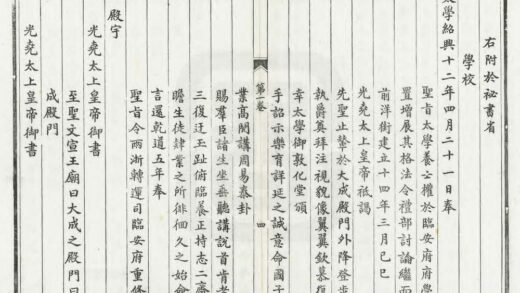 右附於祕書省
學校
太學紹興十二年四月二十一日奉
聖旨太學養士權於臨安府府學
置增展其格法令禮部討論繼而
前洋街建立十四年三月己巳
光堯太上皇帝祗謁
先聖止輦於大成殿門外降登步
執爵奠拜注視貌像翼翼欽慕復
幸太學御敦化堂頒
手詔示樂育詳延之誠意命國子
第一卷 四
業高閌講周易泰卦
賜羣臣諸生坐垂聽講說首肯者
三復迂玉趾俯臨養正持志二齋
瞻生徒隸業之所徘徊久之始命
言還乾道五年奉
聖旨令兩浙轉運司臨安府重修
殿宇
光堯太上皇帝御書
至聖文宣王廟曰大成之殿門曰
成殿門
光堯太上皇帝御書